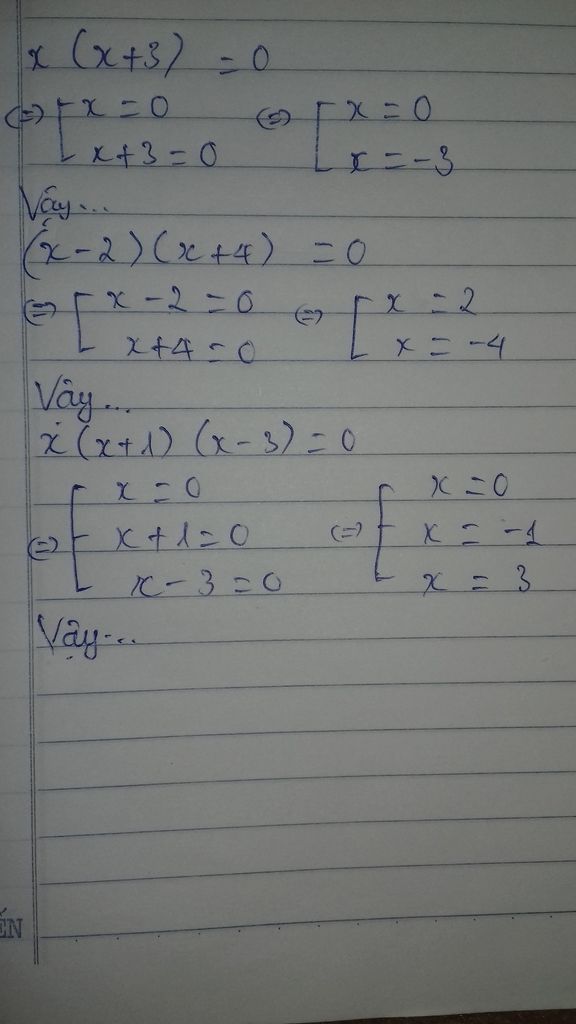 x (x+3) = 0
⇔ [ x = 0 ⇔ [ x = 0
x+3 = 0 x = -3
Vậy...
(x-2)(x+4) = 0
⇔ [ x - 2 = 0 ⇔ [ x = 2
x+4 = 0 x = -4
Vậy...
x(x+1) (x-3) = 0
x = 0 x = 0
⇔ [ x+1 = 0 ⇔ [ x = -1
x-3 = 0 x = 3
Vậy...
ẾN